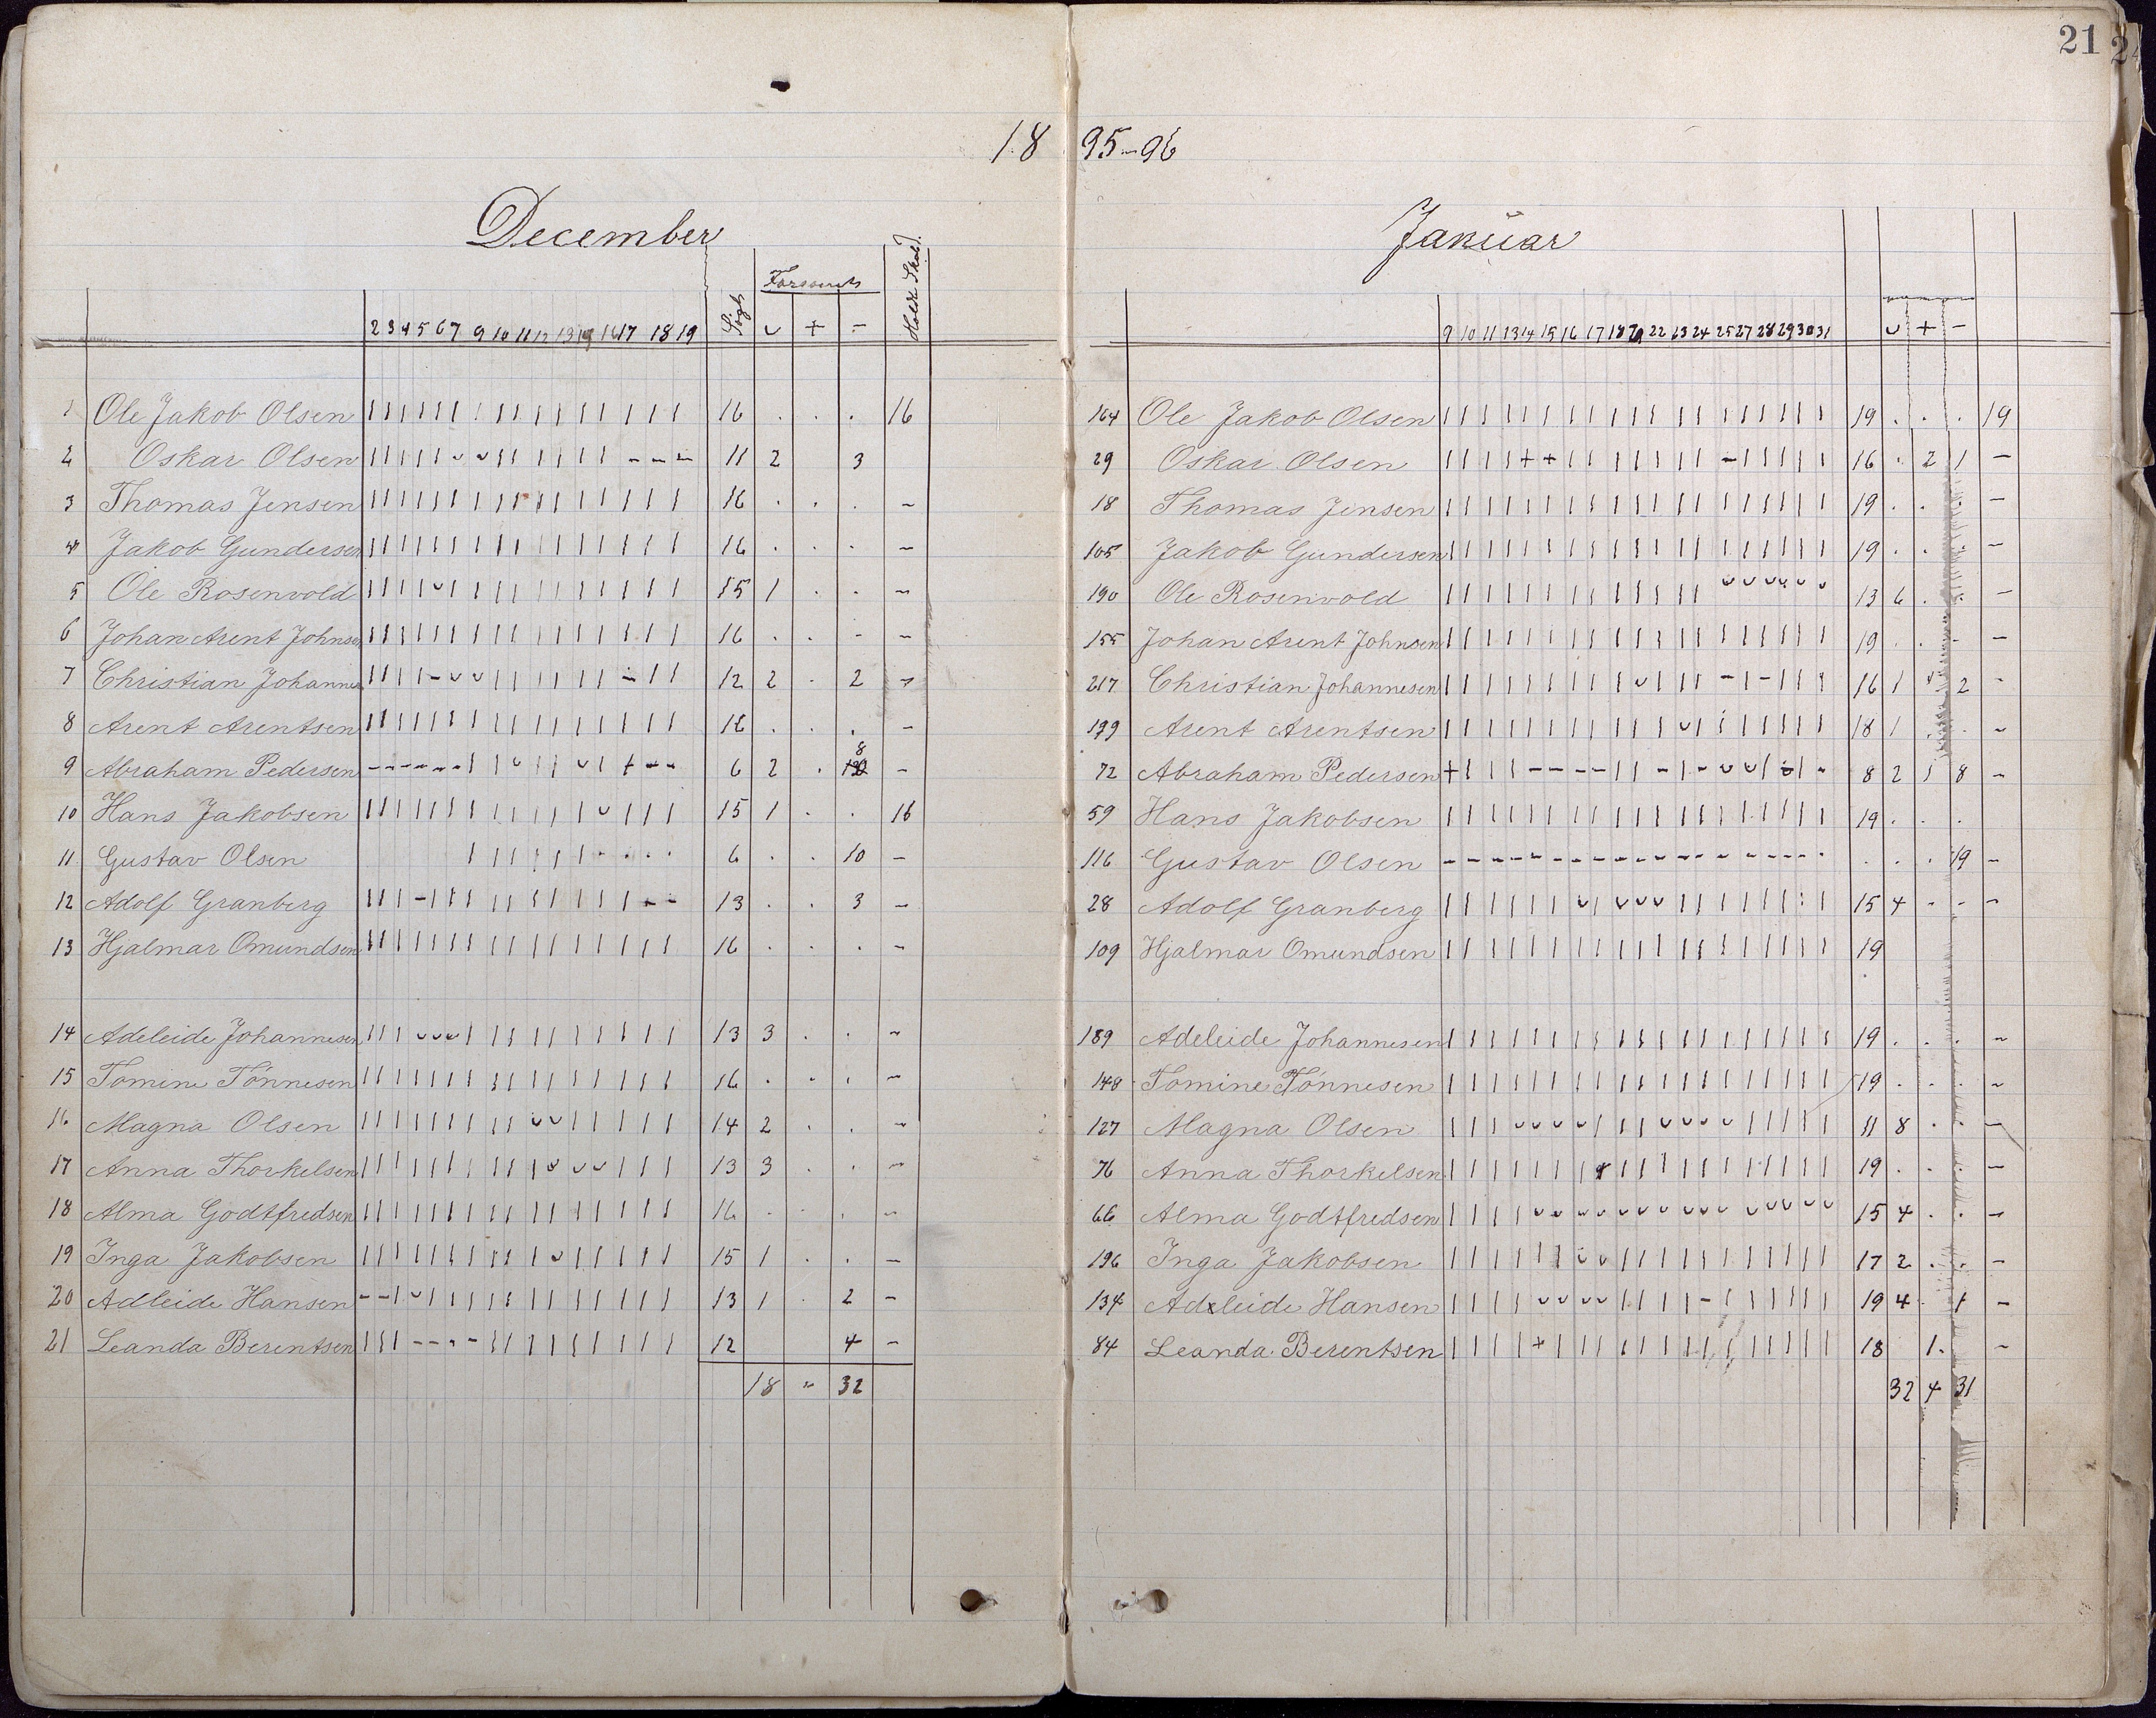 21
18 95-96
December
Søgt Forsømt Holdt Skole
2 3 4 5 6 7 9 10 11 12 13 14 16 17 18 19 ᴗ + -
1 Ole Jakob Olsen 16 . . . 16
2 Oskar Olsen 11 2 3
3 Thomas Jensen 16 . . . -
4 Jakob Gundersen 16 . . . -
5 Ole Rosenvold 15 1 . . -
6 Johan Arent Johnsen 16 . . - -
7 Christian Johannesen 12 2 . 2 -
8 Arent Arentsen 16 . . . -
9 Abraham Pedersen 6 2 . 8 -
10 Hans Jakobsen 15 1 . . 16
11 Gustav Olsen 6 . . 10 -
12 Adolf Granberg 13 . . 3 -
13 Hjalmar Omundsen 16 . . . -
14 Adeleide Johannesen 13 3 . . -
15 Tomine Tönnesen 16 . . . -
16 Magna Olsen 14 2 . . -
17 Anna Thorkelsen 13 3 . . -
18 Alma Godtfredsen 16 . . . -
19 Inga Jakobsen 15 1 . . -
20 Adleide Hansen 13 1 . 2 -
21 Leanda Berentsen 12 4 -
18 " 32
Januar
9 10 11 13 14 15 16 17 18 20 22 23 24 25 27 28 29 30 31 ᴗ + -
164 Ole Jakob Olsen 19 . . . 19
29 Oskar Olsen 16 . 2 1 -
18 Thomas Jensen 19 . . . -
105 Jakob Gundersen 19 . . . -
190 Ole Rosenvold 13 6 . . -
155 Johan Arent Johnsen 19 . . - -
217 Christian Johannesen 16 1 2 -
199 Arent Arentsen 18 1 . . -
72 Abraham Pedersen 8 2 1 8 -
59 Hans Jakobsen 19 . . .
116 Gustav Olsen . . . 19 -
28 Adolf Granberg 15 4 - - -
109 Hjalmar Omundsen 19
189 Adeleide Johannesen 19 . . . -
148 Tomine Tönnesen 19 . . . -
127 Magna Olsen 11 8 . . -
76 Anna Thorkelsen 19 . . . -
66 Alma Godtfredsen 15 4 . . -
196 Inga Jakobsen 17 2 . . -
134 Adeleide Hansen 19 4 . 1 -
84 Leanda Berentsen 18 1 . -
32 4 31